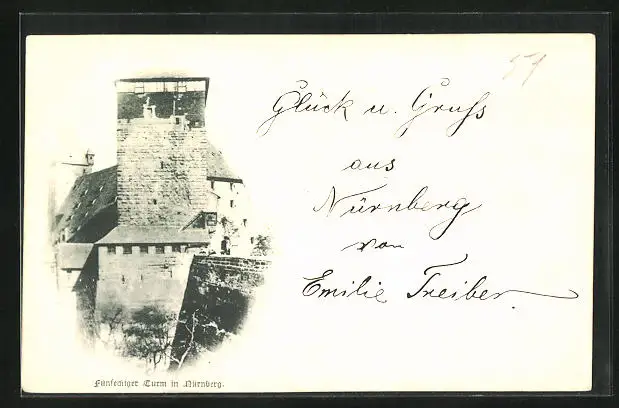 Glück u. Gruß
aus
Nürnberg
von
Emilie Treiber.
Fünfeckiger Turm in Nürnberg.